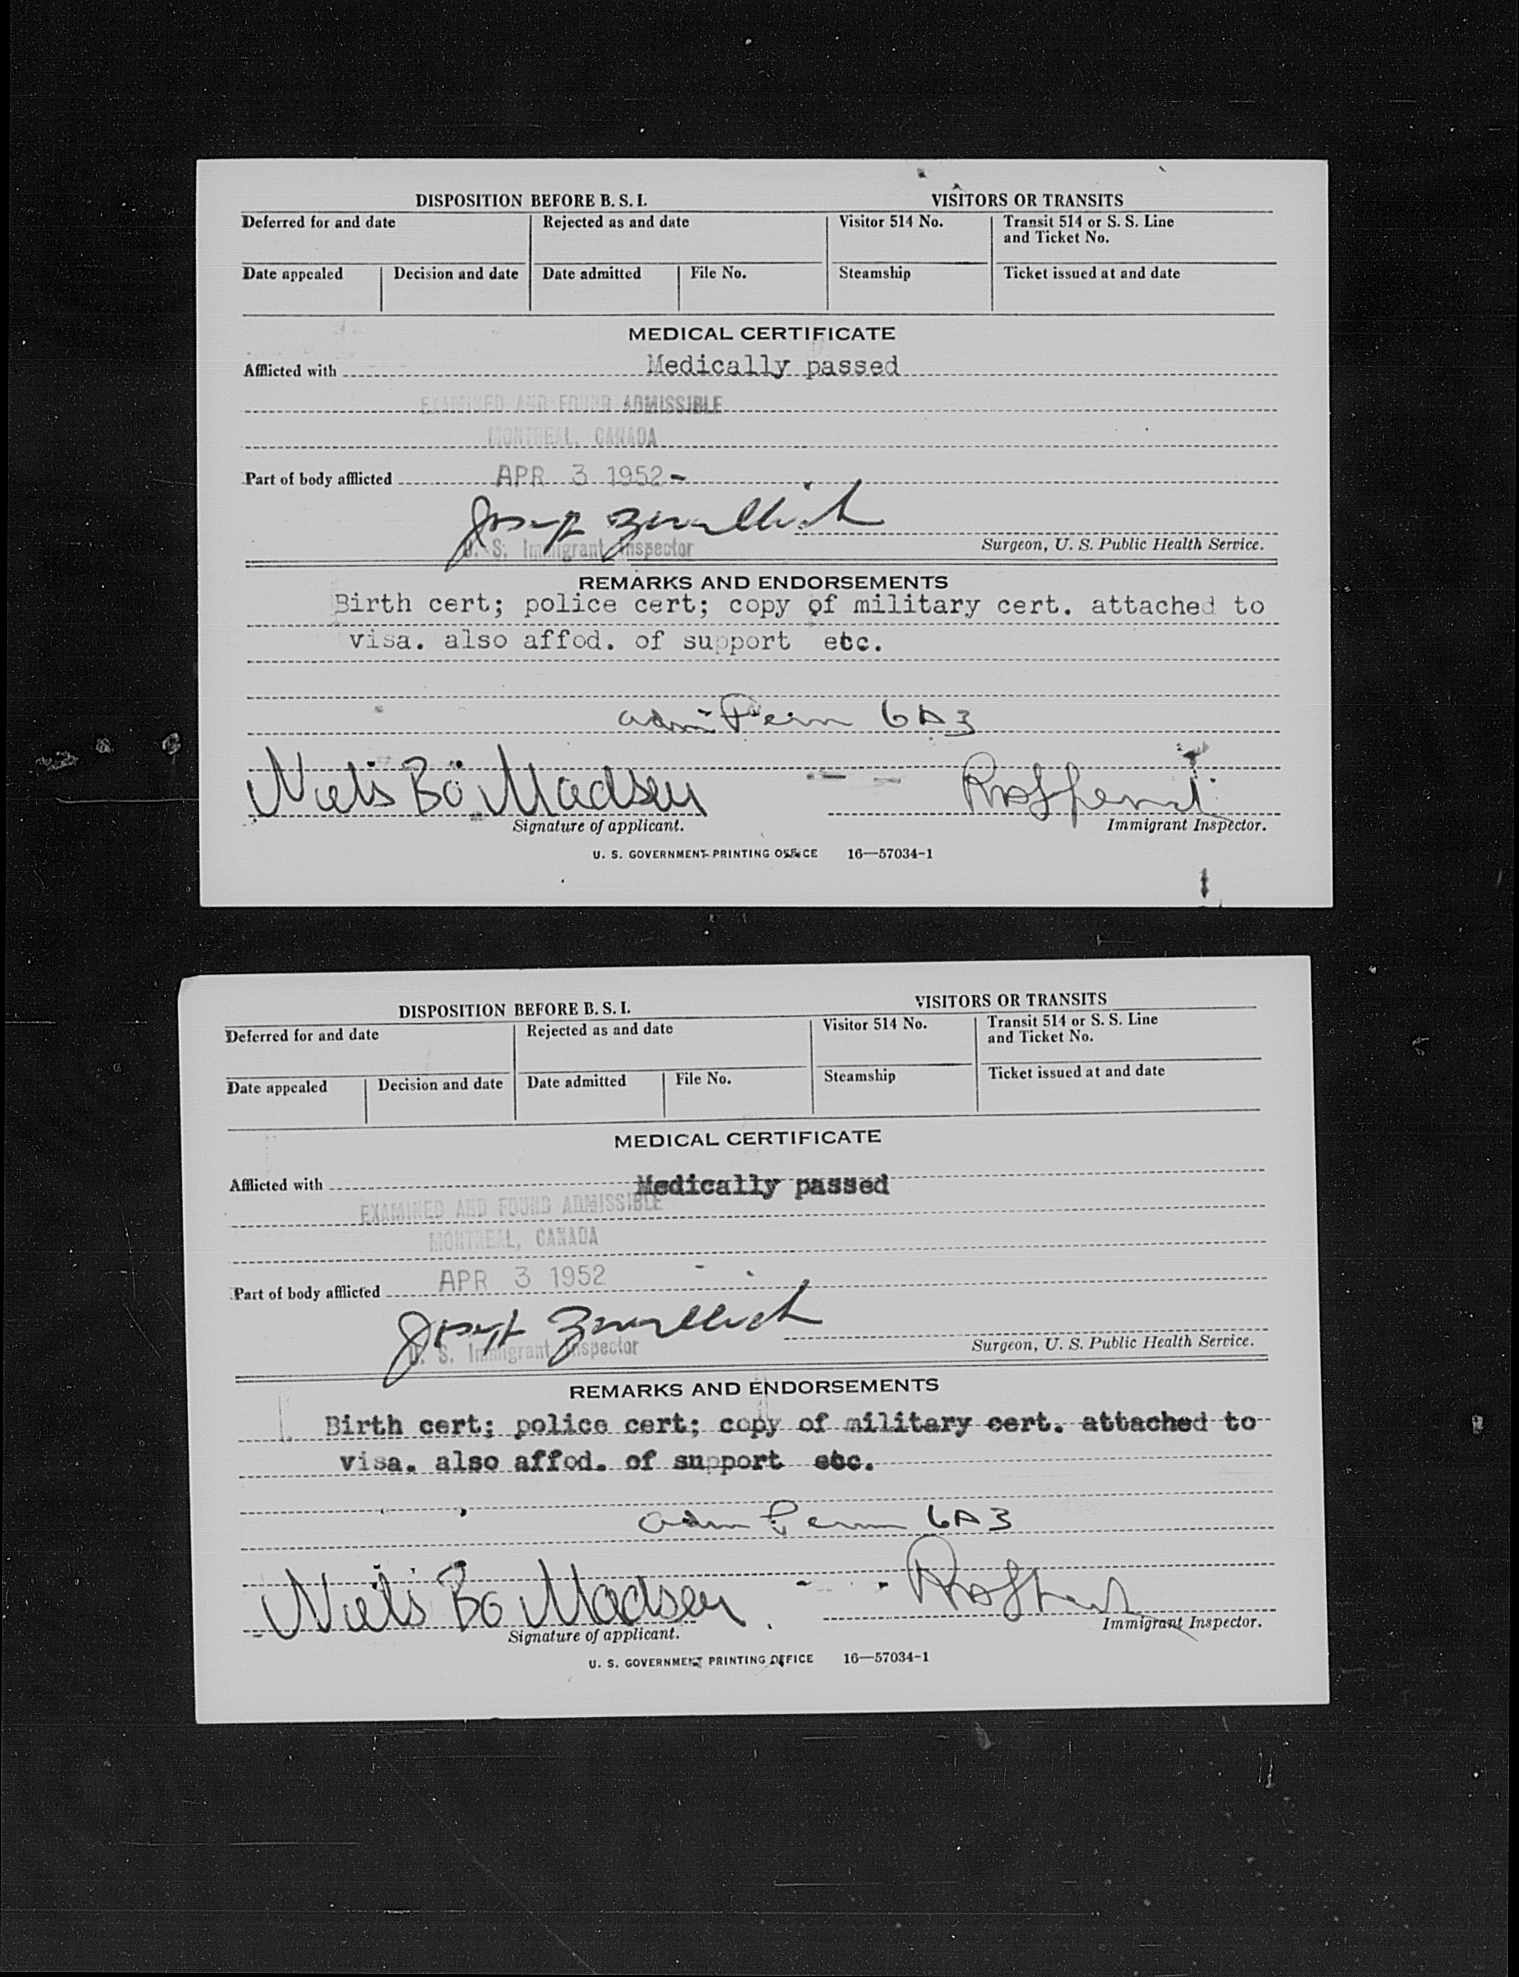 DISPOSITION BEFORE B. S. I.
VISITORS OR TRANSITS
Deferred for and date
Rejected as and date
Visitor 514 No.
Transit 514 or S. S. Line
and Ticket No.
Date appealed
Decision and date
Date admitted
File No.
Steamship
Ticket issued at and date
MEDICAL CERTIFICATE
Afflicted with Medically passed
EXAMINED AND FOUND ADMISSIBLE
MONTREAL, CANADA
Part of body afflicted APR 3 1952
U. S. Immigrant Inspector
Surgeon, U. S. Public Health Service.
REMARKS AND ENDORSEMENTS
Birth cert; police cert; copy of military cert. attached to
visa. also affod. of support etc.
adm Perm 6A3
Niels Bo Madsen
Signature of applicant.
Immigrant Inspector.
U. S. GOVERNMENT PRINTING OFFICE 16—57034-1
DISPOSITION BEFORE B. S. I.
VISITORS OR TRANSITS
Deferred for and date
Rejected as and date
Visitor 514 No.
Transit 514 or S. S. Line
and Ticket No.
Date appealed
Decision and date
Date admitted
File No.
Steamship
Ticket issued at and date
MEDICAL CERTIFICATE
Afflicted with Medically passed
EXAMINED AND FOUND ADMISSIBLE
MONTREAL, CANADA
Part of body afflicted APR 3 1952
U. S. Immigrant Inspector
Surgeon, U. S. Public Health Service.
REMARKS AND ENDORSEMENTS
Birth cert; police cert; copy of military cert. attached to
visa. also affod. of support etc.
adm Perm 6A3
Niels Bo Madsen
Signature of applicant.
Immigrant Inspector.
U. S. GOVERNMENT PRINTING OFFICE 16—57034-1